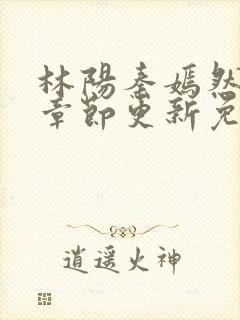 林陽秦嫣然
章節更新免
逍遥火神